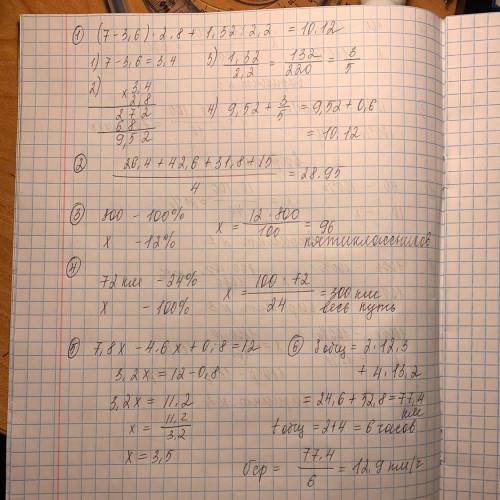 ① (7-3,6) · 2,8 + 1,32 : 2,2 = 10.12
1) 7-3,6=3,4
3) 1,32/2,2 = 132/220 = 3/5
2) × 3,4
2,8
272
68
9,52
4) 9,52 + 3/5 = 9,52 + 0,6
= 10,12
② (26,4 + 42,6 + 31,8 + 15)/4 = 28.95
③ 800 - 100%
x - 12%
x = (12 · 800)/100 = 96
пятиклассников
④ 72 км - 24%
x - 100%
x = (100 · 72)/24 = 300 км
весь путь
⑤ 7,8x - 4.6x + 0,8 = 12
3,2x = 12 - 0,8
3,2x = 11,2
x = 11,2/3,2
x = 3,5
⑥ S общ = 2 · 12,3
+ 4 · 13,2
= 24,6 + 52,8 = 77,4
км
t общ = 2+4 = 6 часов
ср = 77,4/6 = 12,9 км/г